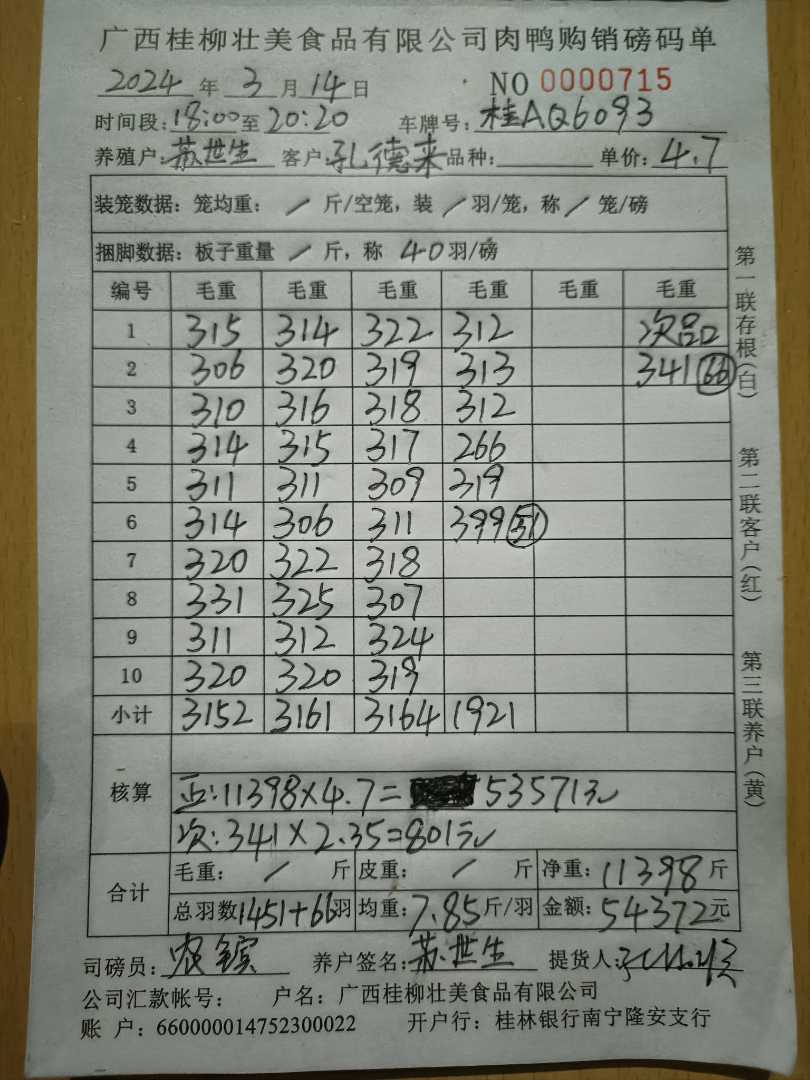 广西桂柳壮美食品有限公司肉鸭购销磅码单
2024 年 3 月 14 日 NO 0000715
时间段: 18:00 至 20:20 车牌号: 桂AQ6093
养殖户: 苏世生 客户: 孔德来 品种: 单价: 4.7
装笼数据: 笼均重: / 斤/空笼, 装 / 羽/笼, 称 / 笼/磅
捆脚数据: 板子重量 / 斤, 称 40 羽/磅
编号 毛重 毛重 毛重 毛重 毛重 毛重
1 315 314 322 312 次品
2 306 320 319 313 341 66
3 310 316 318 312
4 314 315 317 266
5 311 311 309 319
6 314 306 311 399 51
7 320 322 318
8 331 325 307
9 311 312 324
10 320 320 319
小计 3152 3161 3164 1921
核算
正: 11398×4.7= 53571元
次: 341×2.35=801元
合计
毛重: / 斤 皮重: / 斤 净重: 11398 斤
总羽数 1451+66 羽 均重: 7.85 斤/羽 金额: 54372 元
司磅员: 农 养户签名: 苏世生 提货人:
公司汇款帐号: 户名: 广西桂柳壮美食品有限公司
账 户: 660000014752300022 开户行: 桂林银行南宁隆安支行
第一联存根(白)
第二联客户(红)
第三联养户(黄)